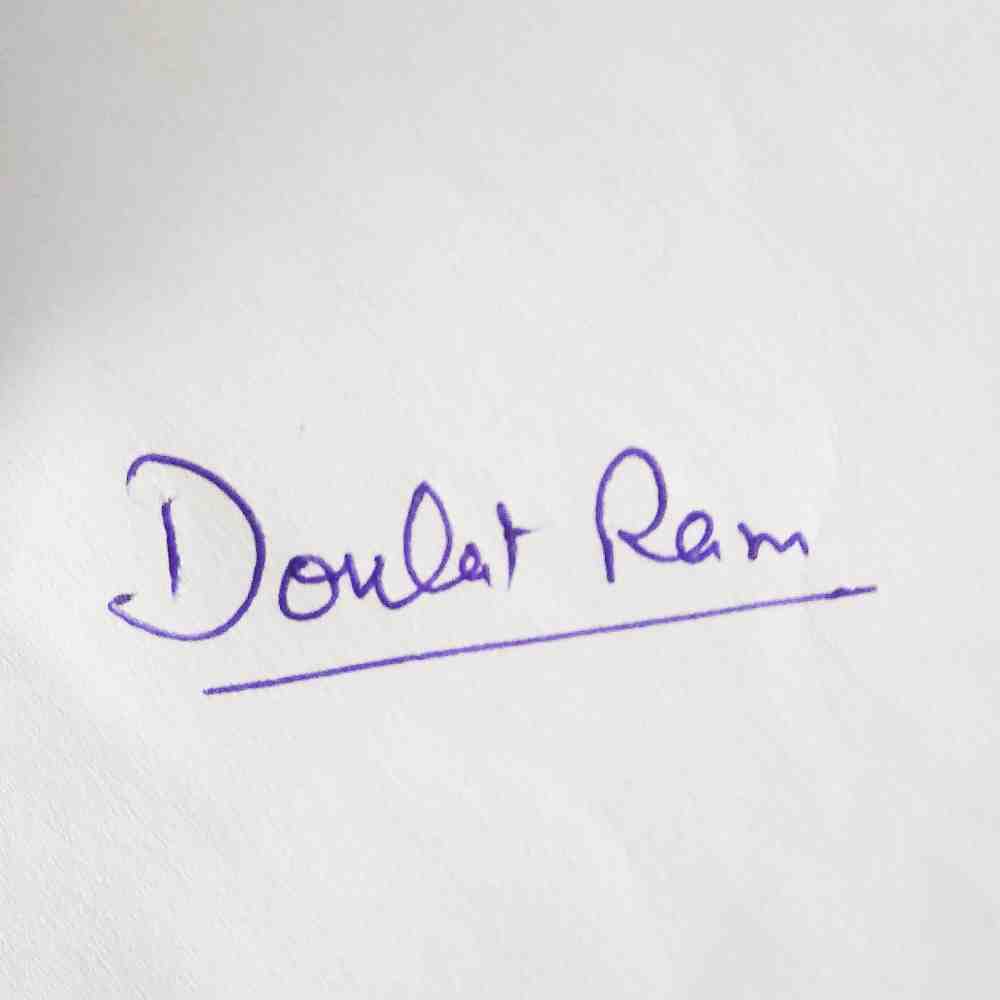 Doulat Ram